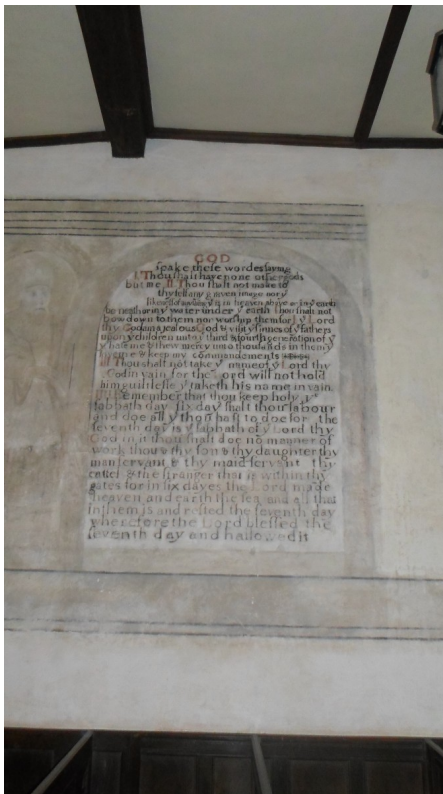 GOD
spake these wordes saying
I. Thou shalt have none other gods
but me II. Thou shalt not make to
thy self any graven image nor y
likenes of anything y is in heaven above or in y earth
beneath or in y water under y earth Thou shalt not
bow down to them nor worship them for I y Lord
thy God am a jealous God & visit y sinnes of y fathers
upon y children unto y third & fourth generation of y
y hate me & shew mercy unto thousands in them y
love me & keep my commandements
III Thou shalt not take y name of y Lord thy
God in vain for the Lord will not hold
him guiltlesse y taketh his name in vain
Remember that thou keep holy y
sabbath day six days shalt thou labour
and doe all y thou hast to doe for the
seventh day is y sabbath of y Lord thy
God in it thou shalt doe no manner of
work thou & thy son & thy daughter thy
man servant & thy maid servant thy
cattel & the stranger that is within thy
gates for in six dayes the Lord made
heaven and earth the sea and all that
in them is and rested the seventh day
wherefore the Lord blessed the
seventh day and hallowed it